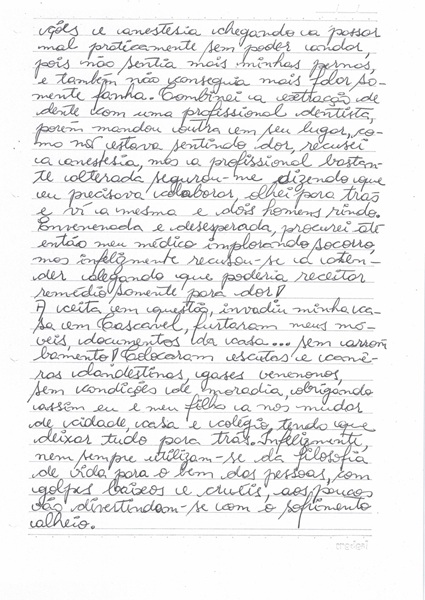 ções e anestesia chegando a passar
mal praticamente sem poder andar,
pois não sentia mais minhas pernas,
e também não conseguia mais falar so-
mente fanha. Combinei a extração de
dente com uma profissional dentista,
porém mandou outra em seu lugar, co-
mo não estava sentindo dor, recusei
a anestesia, mas a profissional bastan-
te alterada segurou-me dizendo que
eu precisava colaborar, olhei para trás
e vi a mesma e dois homens rindo.
Envenenada e desesperada, procurei até
então meu médico implorando socorro,
mas infelizmente recusou-se a aten-
der alegando que poderia receitar
remédio somente para dor!
A seita em questão, invadiu minha ca-
sa em Cascavel, furtaram meus mó-
veis, documentos da casa... sem arrom
bamento! Colocaram escutas e came-
ras clandestinas, gases venenosos,
sem condições de moradia, obrigando
assim eu e meu filho a nos mudar
de cidade, casa e colégio, tendo que
deixar tudo para trás. Infelizmente,
nem sempre utilizam-se da filosofia
de vida para o bem das pessoas, com
golpes baixos e cruéis, aos poucos
vão divertindo-se com o sofrimento
alheio.